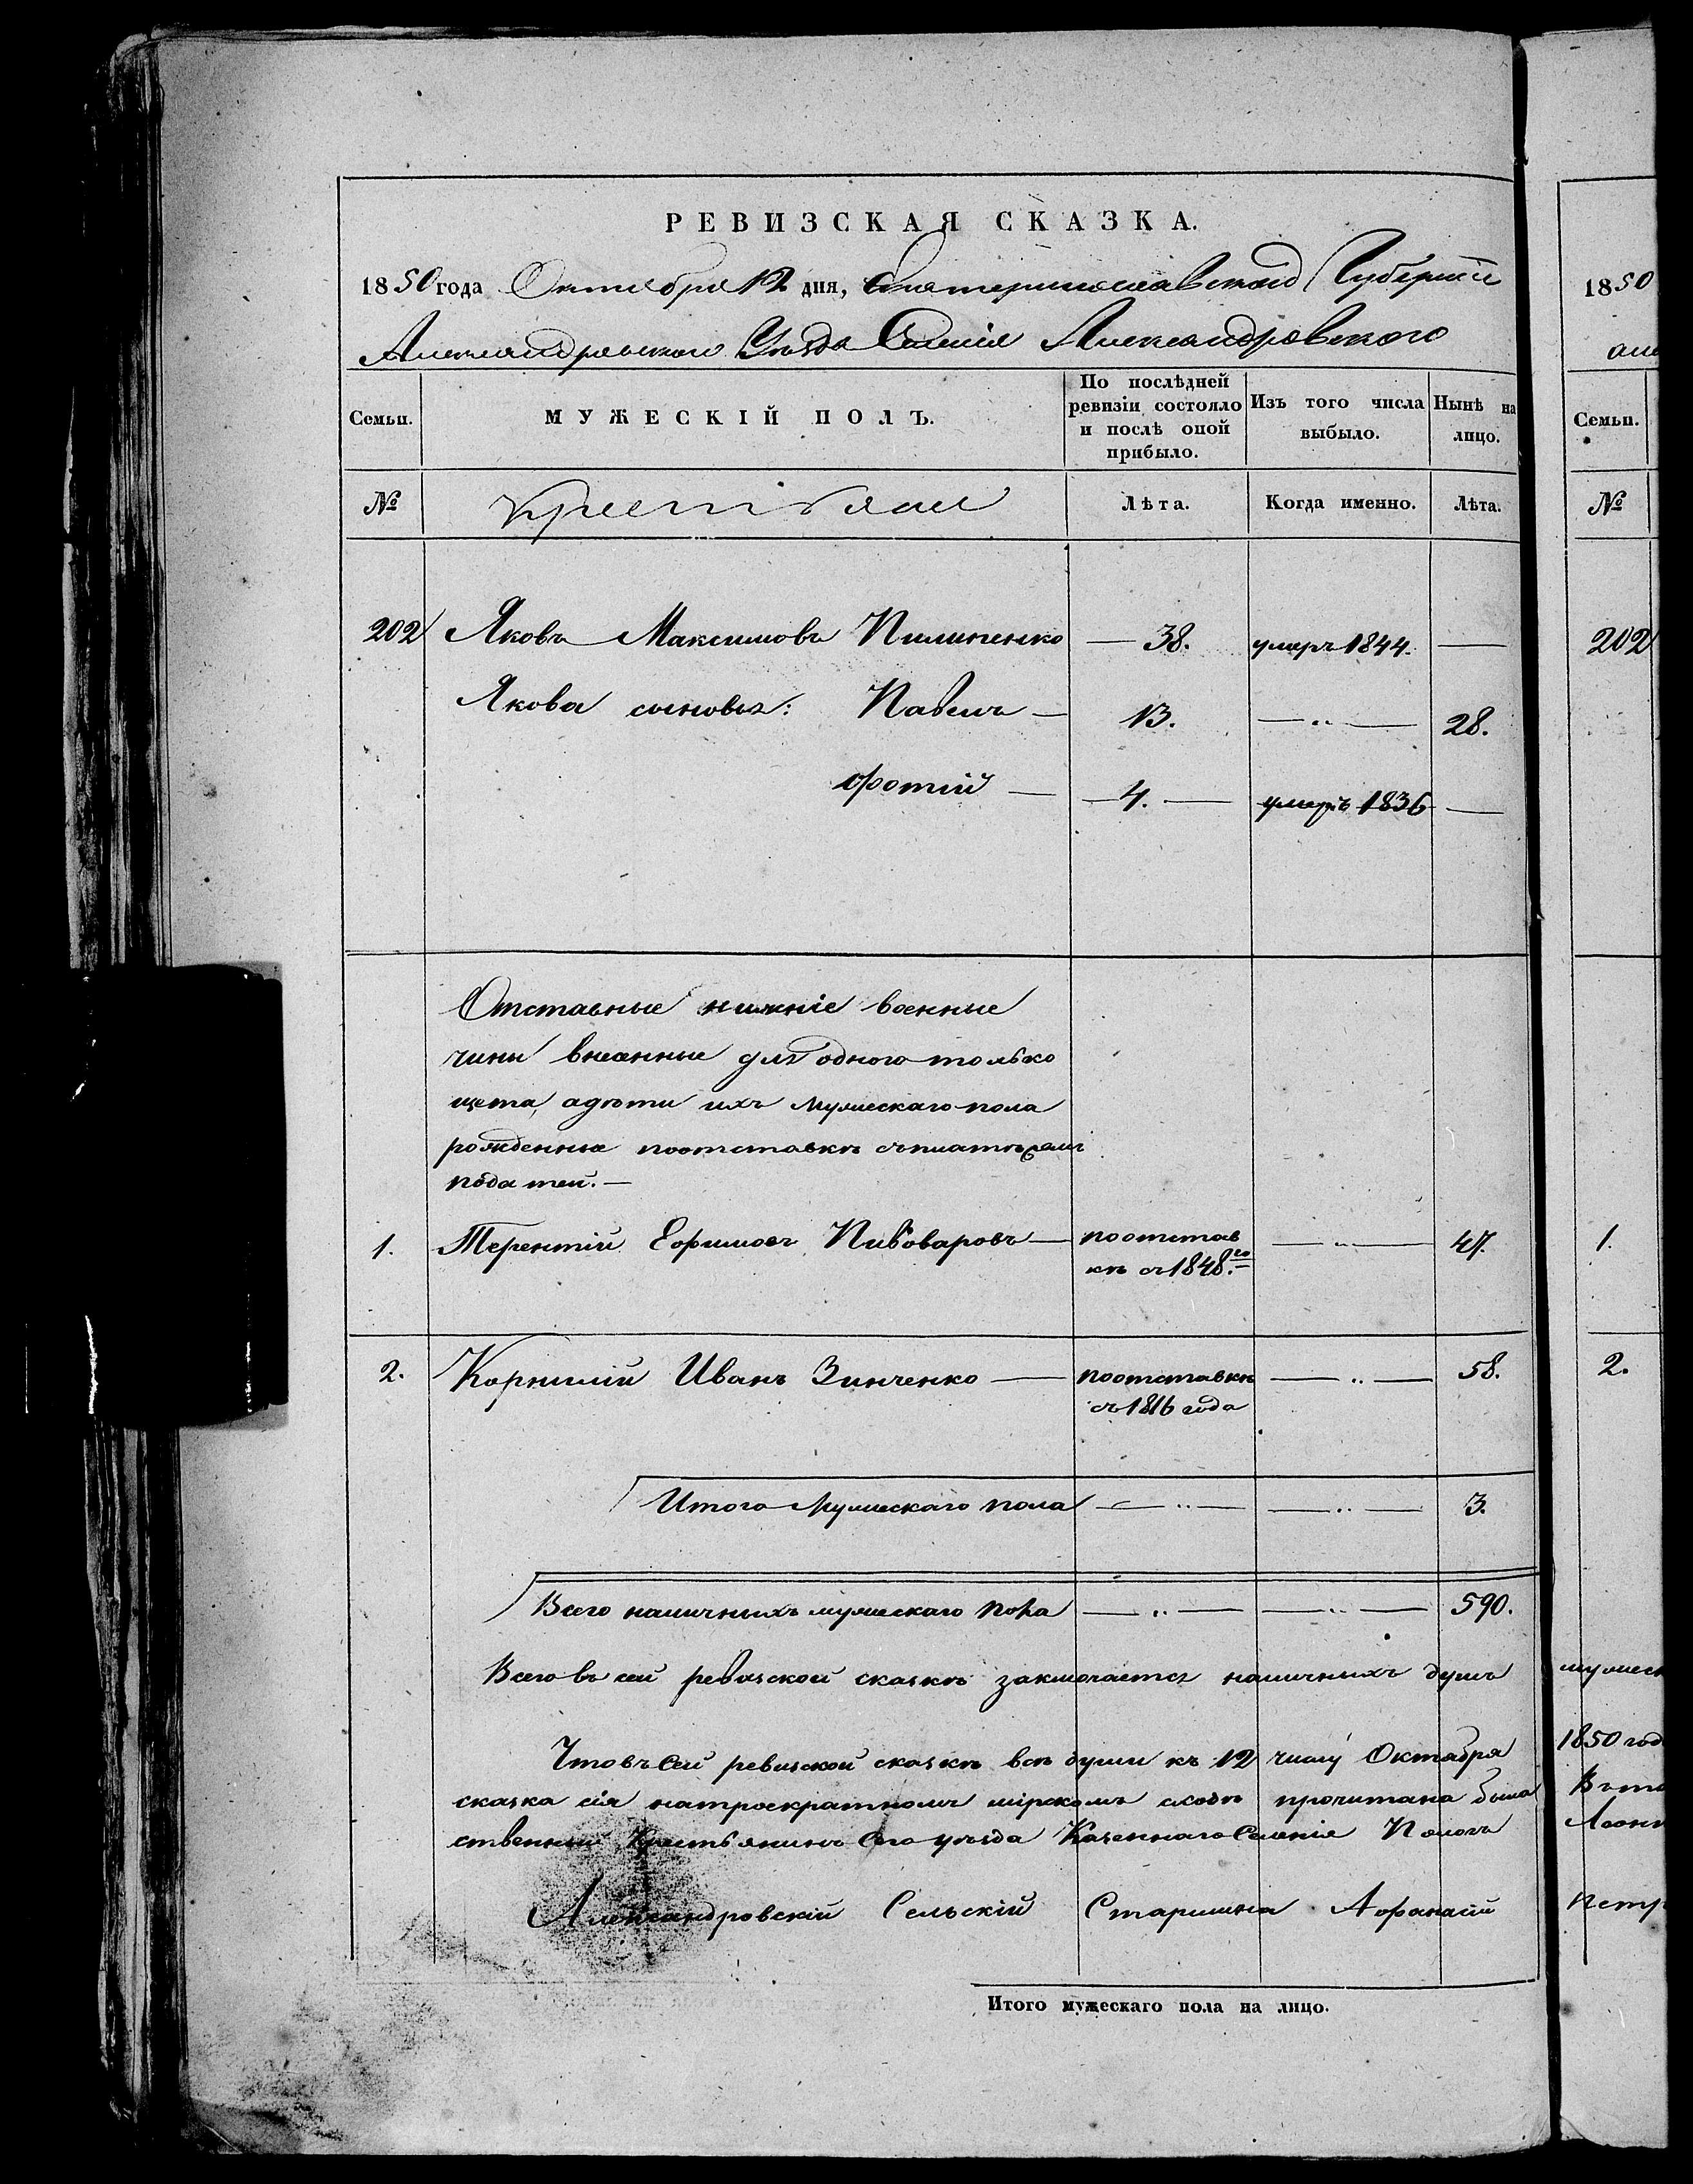 РЕВИЗСКАЯ СКАЗКА.
1850 года Октября 12 дня, Екатеринославской Губернiи
Александровскаго Уѣзда Селенiя Александровского
Семьи. МУЖЕСКІЙ ПОЛЪ. По послѣдней ревизіи состояло и послѣ оной прибыло. Изъ того числа выбыло. Нынѣ на лицо.
№ Крестьяне Лѣта. Когда именно. Лѣта.
202 Яковъ Максимовъ Пилипенко — 38. умеръ 1844. —
Якова сыновья: Павелъ — 13. — " — 28.
Фотій — 4. — умеръ 1836 —
Отставные нижніе военные
чины внесенные для одного только
щета, адѣти ихъ мужескаго пола
рожденные поотставкѣ
податей. —
1. Терентій Ефимовъ Пивоваровъ — поотстав — " — 47.
кѣ съ 1848.го
2. Корнилій Иванъ Зинченко — поотставкѣ — " — 58.
съ 1816 года
Итого Мужескаго пола — " — — " — 3.
Всего наличныхъ мужескаго пола — " — — " — 590.
Всего въ сей ревизской сказкѣ заключается наличныхъ душъ
Чтовъ сей ревизской сказкѣ всѣ души къ 12 числу Октября
сказка сія натроекратномъ мірскомъ сходѣ прочитана была
ственный Крестьянинъ Сего уѣзда Казеннаго Селенія Пологъ
Александровскій Сельскій Старшина Афанасій
Итого мужескаго пола на лицо.
1850
Семьи.
№
202
1.
2.
мужеск
1850 год
Петр